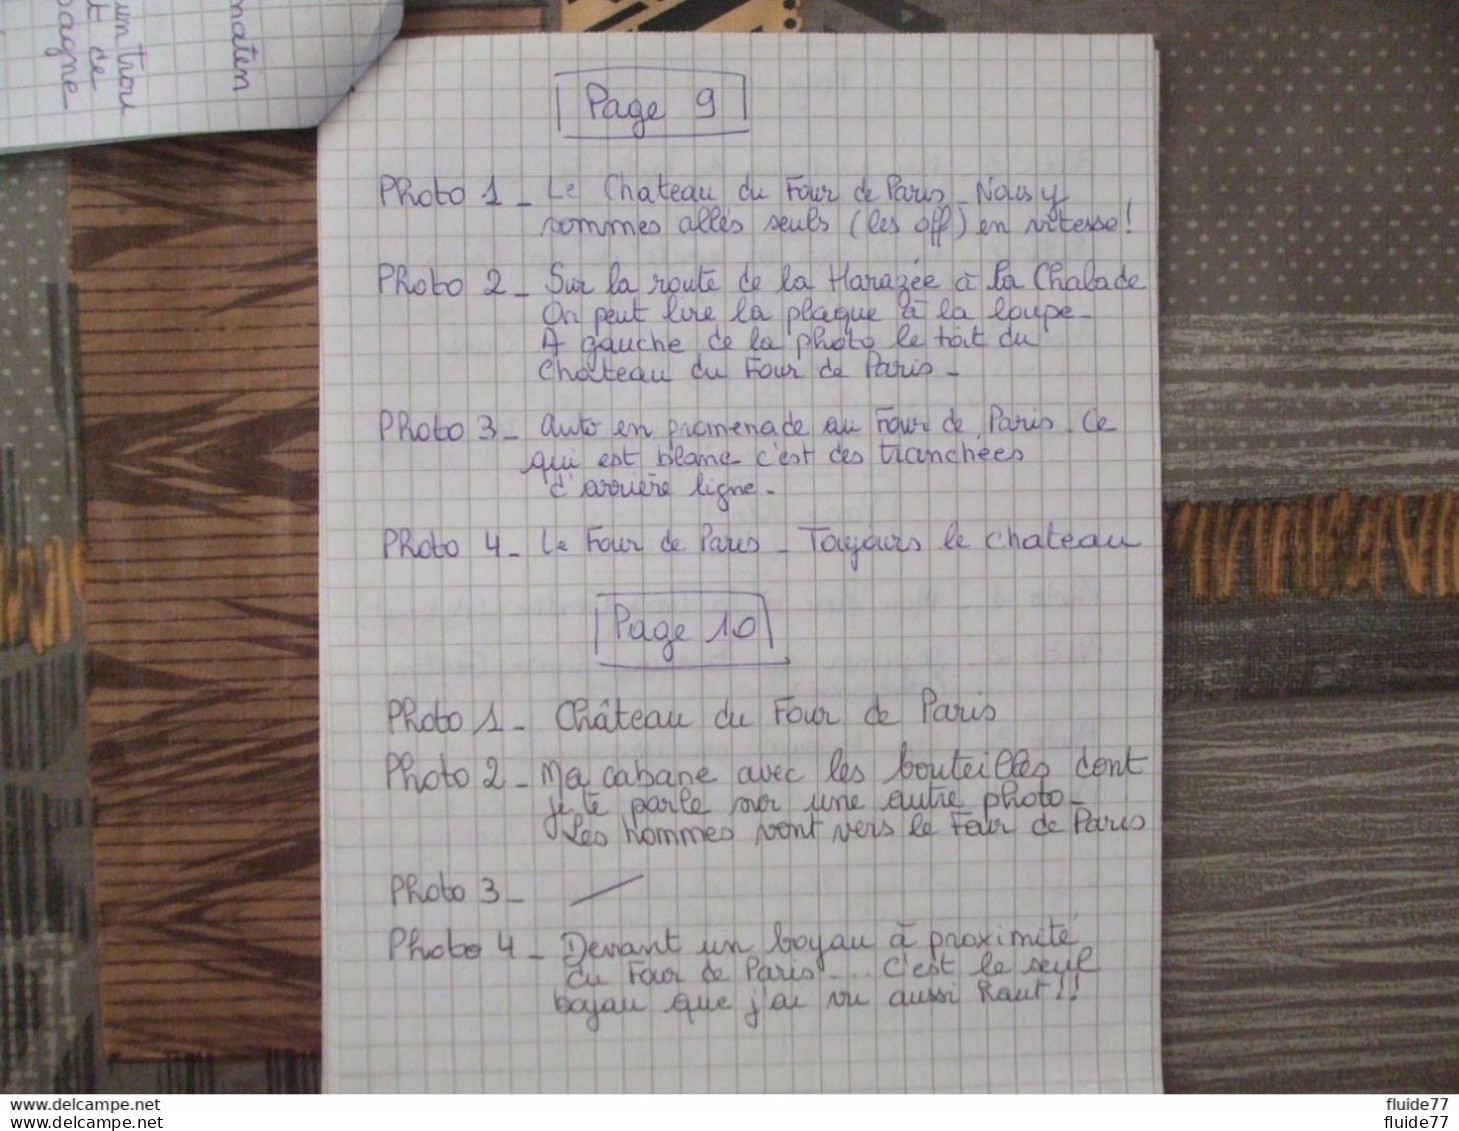 matin
un trou
t de
pagne
Page 9
Photo 1 - Le Chateau du Four de Paris - Nous y
sommes allés seuls (les off) en vitesse !
Photo 2 - Sur la route de la Harazée à la Chalade
On peut lire la plaque à la loupe -
A gauche de la photo le toit du
Chateau du Four de Paris -
Photo 3 - Auto en promenade au Four de Paris. Ce
qui est blanc c'est des tranchées
d'arrière ligne -
Photo 4 - Le Four de Paris - Toujours le chateau
Page 10
Photo 1 - Château du Four de Paris
Photo 2 - Ma cabane avec les bouteilles dont
je te parle sur une autre photo -
Les hommes vont vers le Four de Paris
Photo 3 - /
Photo 4 - Devant un boyau à proximité
du Four de Paris... C'est le seul
boyau que j'ai vu aussi haut !!
www.delcampe.net
www.delcampe.net
fluide77
fluide77